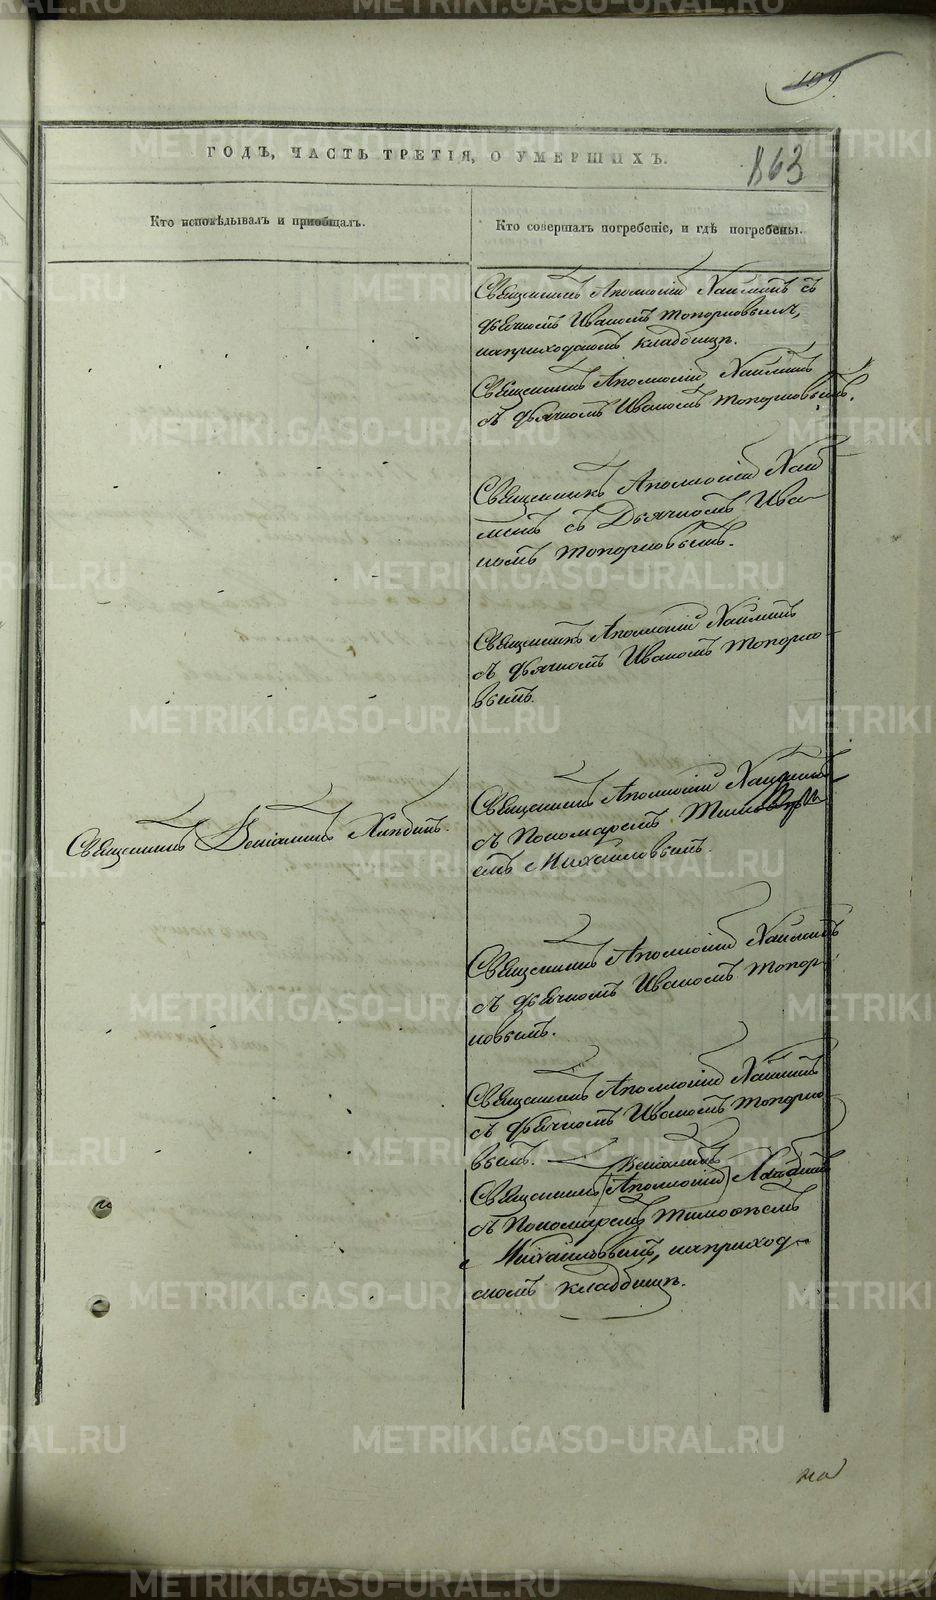 109
ГОДЪ, ЧАСТЬ ТРЕТІЯ, О УМЕРШИХЪ.
863
Кто исповѣдывалъ и приобщалъ.
Кто совершалъ погребеніе, и гдѣ погребены.
Священникъ Аполлоній съ
дьячкомъ Иваномъ Топорковымъ,
на приходскомъ кладбищѣ.
Священникъ Аполлоній
съ дьячкомъ Иваномъ Топорковымъ.
Священникъ Аполлоній
съ Дьячкомъ Ива-
номъ Топорковымъ.
Священникъ Аполлоній
съ дьячкомъ Иваномъ Топорко-
вымъ.
Священникъ Веніаминъ
Священникъ Аполлоній
съ Пономаремъ
емъ Михайловымъ.
Священникъ Аполлоній
съ дьячкомъ Иваномъ Топор-
ковымъ.
Священникъ Аполлоній
съ дьячкомъ Иваномъ Топорко-
вымъ.
Веніаминъ
Священникъ (Аполлоній)
съ Пономаремъ Тимофеемъ
Михайловымъ, на приход-
скомъ кладбищѣ.
METRIKI.GASO-URAL.RU